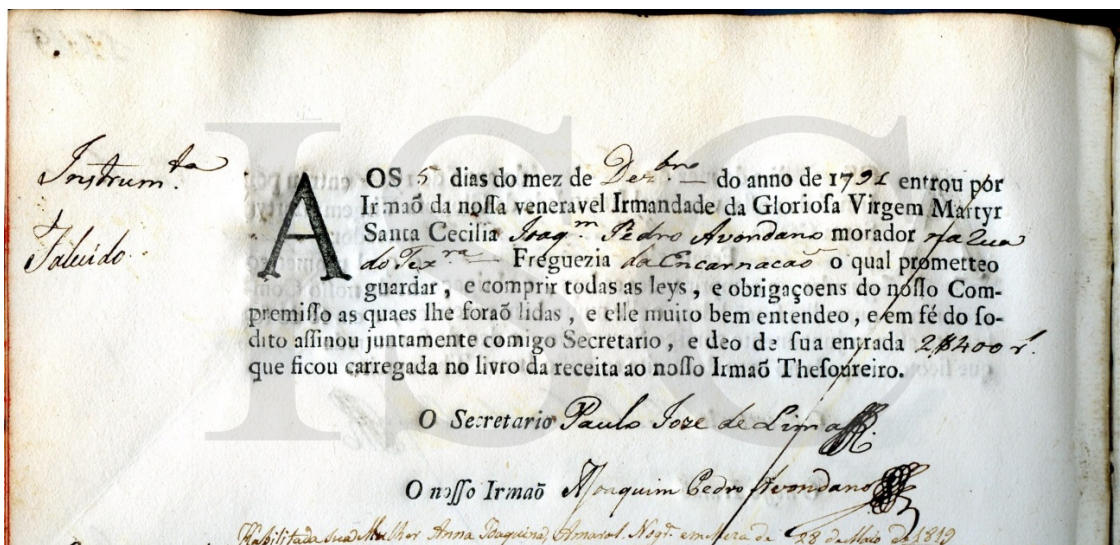 Instrum.ta
Faluido.
AOS 5 dias do mez de Dezbro do anno de 1791 entrou por
Irmaõ da noſſa veneravel Irmandade da Glorioſa Virgem Martyr
Santa Cecilia Joaqm Pedro Avondano morador na Rua
do Texra Freguezia da Encarnacaõ o qual prometteo
guardar, e comprir todas as leys, e obrigaçoens do noſſo Com-
premiſſo as quaes lhe foraõ lidas, e elle muito bem entendeo, e em fé do ſo-
dito aſſinou juntamente comigo Secretario, e deo de ſua entrada 2$400 r.
que ficou carregada no livro da receita ao noſſo Irmaõ Theſoureiro.
O Secretario Paulo Joze de Lima
O noſſo Irmaõ Joaquim Pedro Avondano
Habilitada sua Mulher Anna Joaquina Amaral. Nogr. em Meza de 28 de Maio de 1819
ISC